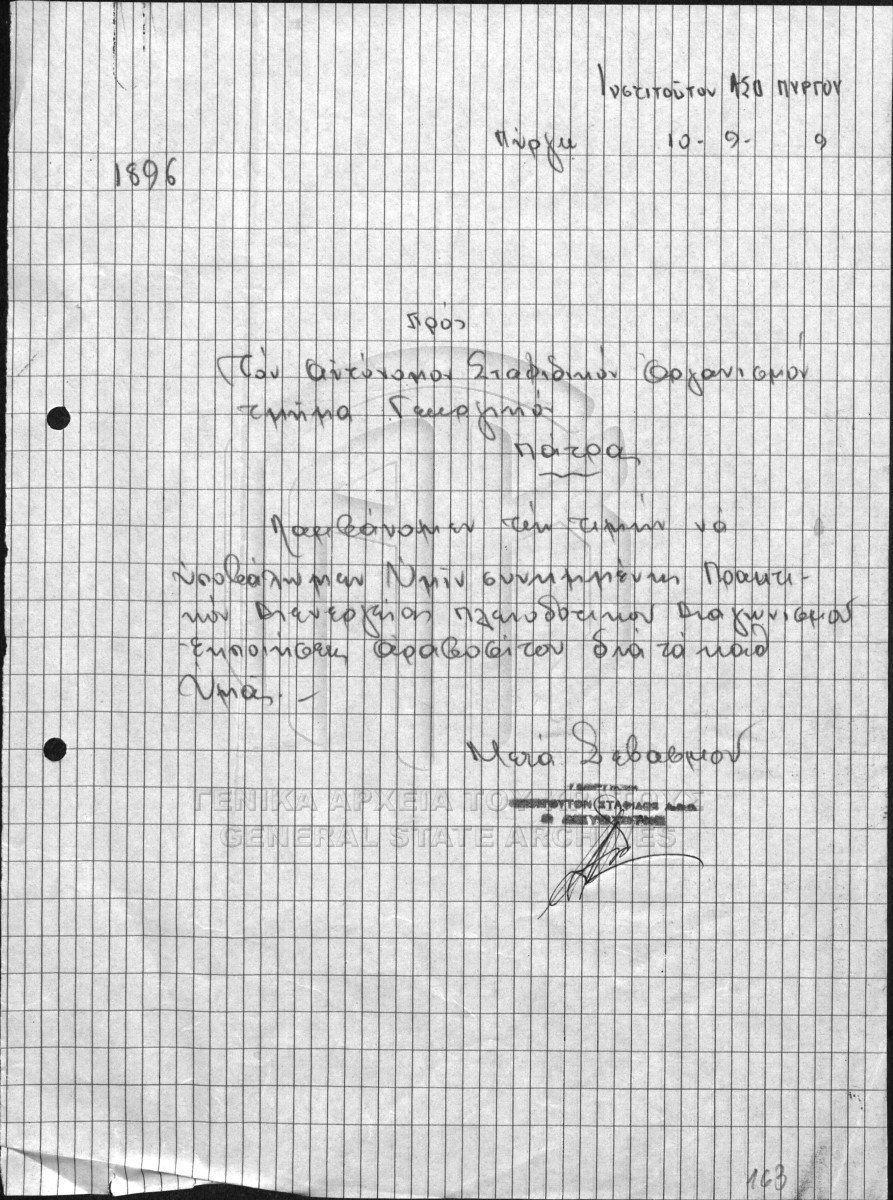 Ἰνστιτοῦτον ΑΣΟ ΠΥΡΓΟΥ
Πύργῳ 10-9- 9
1896
Πρός
Τόν Αὐτόνομον Σταφιδικόν Ὀργανισμόν
Τμῆμα Γεωργικό
Πάτρας
Λαμβάνομεν τήν τιμήν νά
ὑποβάλωμεν Ὑμῖν συνημμένως Πρακτι-
κόν Διενεργείας πλειοδοτικοῦ Διαγωνισμοῦ
ἐκποιήσεως ἀραβοσίτου διά τά καθ
Ὑμᾶς.-
Μετά Σεβασμοῦ
ΣΤΑΦΙΔΟΣ Α.Σ.Ο.
Ο ΔΙΕΥΘΥΝΤΗΣ
ΓΕΝΙΚΑ ΑΡΧΕΙΑ ΤΟΥ ΚΡΑΤΟΥΣ
GENERAL STATE ARCHIVES
163